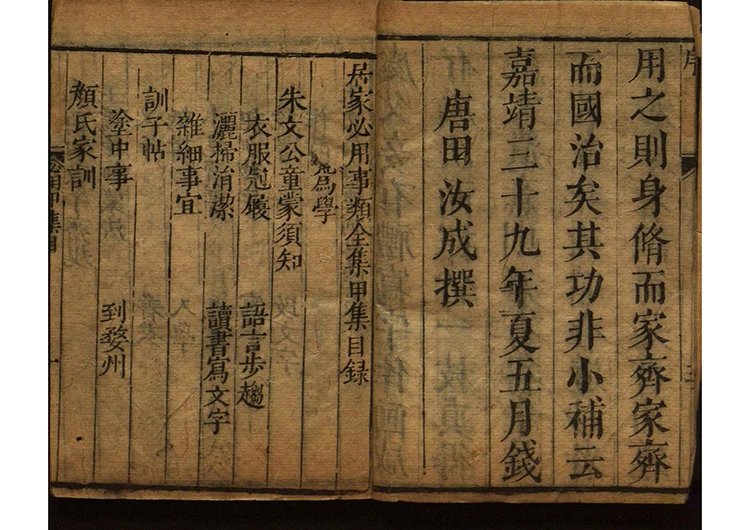 序
用之則身脩而家齊家齊
而國治矣其功非小補云
嘉靖三十九年夏五月錢
唐田汝成撰
居家必用事類全集甲集目録
為學
朱文公童蒙須知
衣服冠履 語言步趨
灑掃涓潔 讀書寫文字
雜細事宜
訓子帖
塗中事 到婺州
顏氏家訓